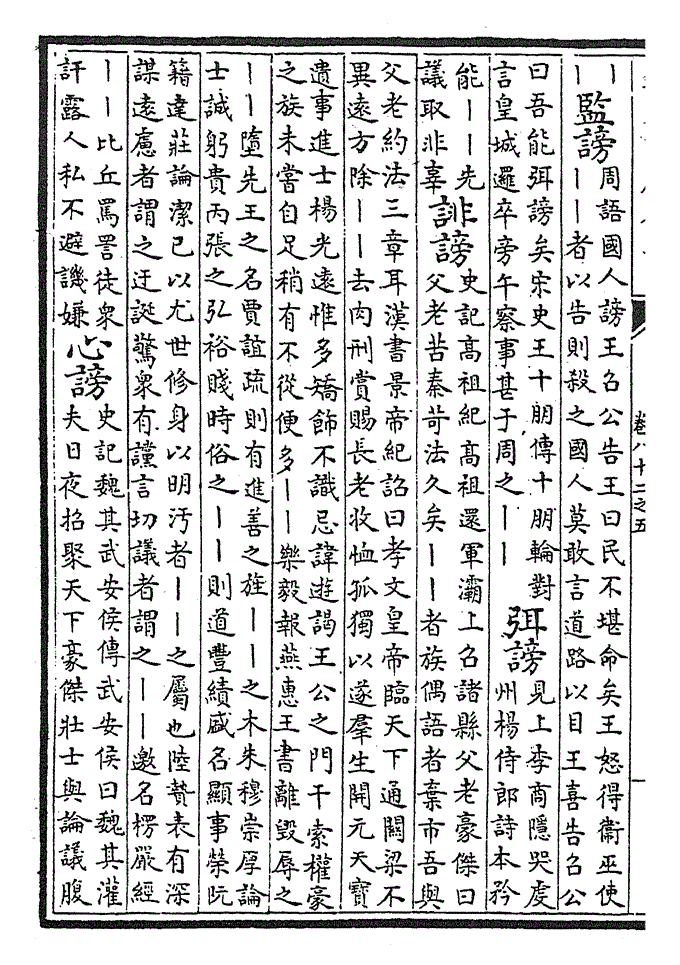 卷八十二之五
｜
｜
監謗
周語國人謗王召公告王曰民不堪命矣王怒得衛巫使
｜｜者以告則殺之國人莫敢言道路以目王喜告召公
曰吾能弭謗矣宋史王十朋傳十朋輪對
言皇城邏卒旁午察事甚于周之｜｜
弭謗
見上李商隱哭虔
州楊侍郎詩本矜
能｜｜先
議取非辜
誹謗
史記高祖紀高祖還軍灞上召諸縣父老豪傑曰
父老苦秦苛法久矣｜｜者族偶語者棄市吾與
父老約法三章耳漢書景帝紀詔曰孝文皇帝臨天下通關梁不
異遠方除｜｜去肉刑賞賜長老收恤孤獨以遂羣生開元天寶
遺事進士楊光遠惟多矯飾不識忌諱遊謁王公之門干索權豪
之族未嘗自足稍有不從便多｜｜樂毅報燕惠王書離毀辱之
｜｜墮先王之名賈誼疏則有進善之旌｜｜之木朱穆崇厚論
士誠躬貴丙張之弘裕賤時俗之｜｜則道豐績盛名顯事榮阮
籍達莊論潔己以尤世修身以明汚者｜｜之屬也陸贄表有深
謀遠慮者謂之迂誕驚衆有讜言切議者謂之｜｜邀名楞嚴經
｜｜比丘罵詈徒衆
訐露人私不避譏嫌
心謗
史記魏其武安侯傳武安侯曰魏其灌
夫日夜招聚天下豪傑壯士與論議腹